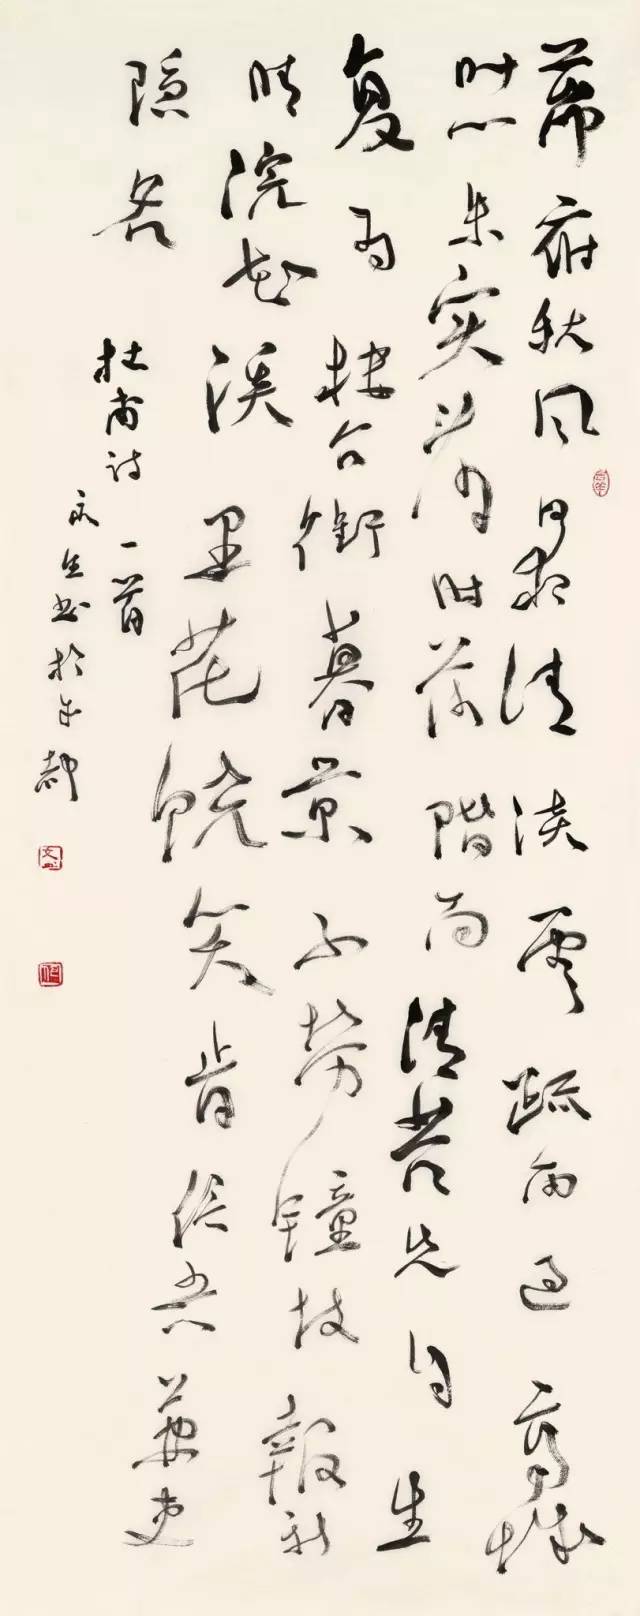 幕府秋风日夜清淡雲疏雨过高城
叶心朱实看时落階面清苔先自生
复有楼台衔暮景不劳鐘鼓報新
晴浣花溪里花饶笑肯信吾兼吏
隐名
杜甫诗一首
生书於都